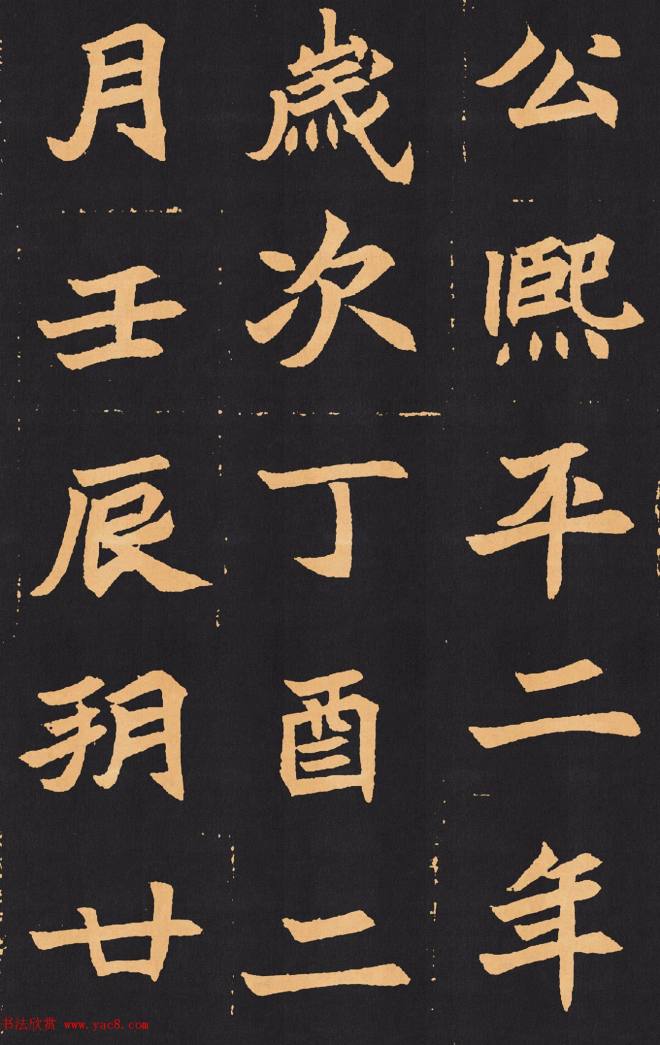 公熙平二年
歲次丁酉二
月壬辰玥廿
书法欣赏 www.yac8.com